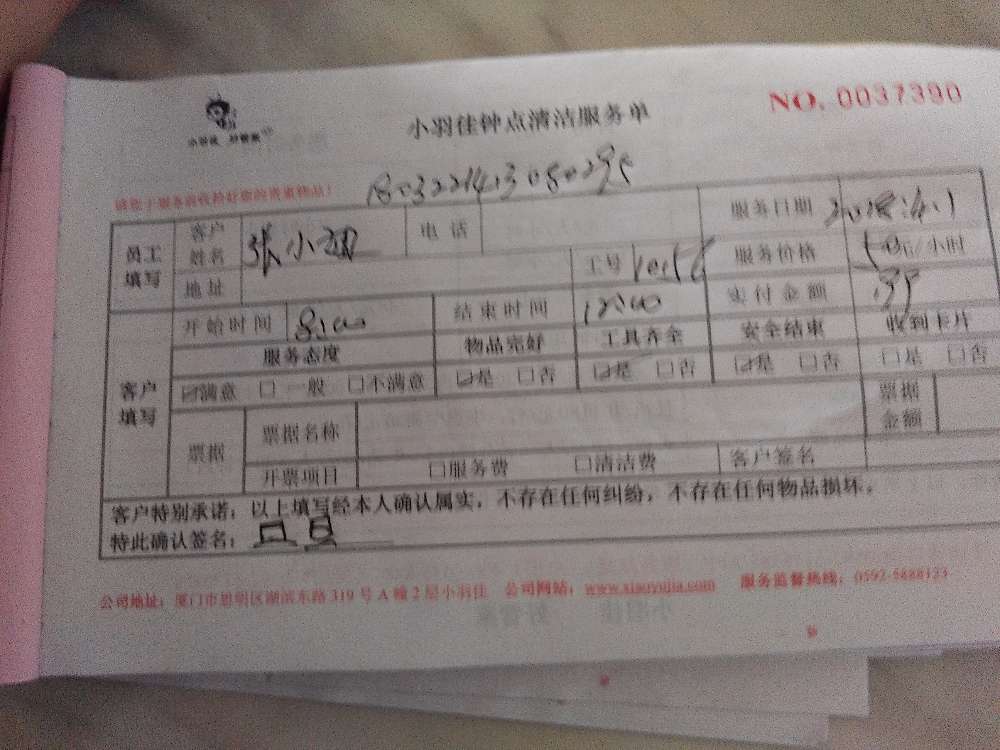 小羽佳 好管家
小羽佳钟点清洁服务单
NO. 0037390
请您于服务前收拾好您的贵重物品!
180322141308029
员工填写 客户姓名 张小 电话 服务日期
地址 工号 服务价格 50元/小时
实付金额
客户填写 开始时间 8:00 结束时间 12:00
服务态度 物品完好 工具齐全 安全结束 收到卡片
☑满意 □一般 □不满意 ☑是 □否 ☑是 □否 ☑是 □否 □是 □否
票据 票据名称 票据金额
开票项目 □服务费 □清洁费 客户签名
客户特别承诺：以上填写经本人确认属实，不存在任何纠纷，不存在任何物品损坏。
特此确认签名：
公司地址：厦门市思明区湖滨东路319号A幢2层小羽佳 公司网站：www.xiaoyujia.com 服务监督热线：0592-5488123